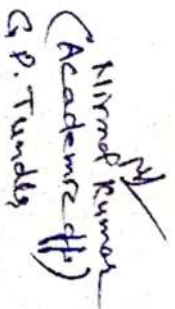 Nirmal Kumar
(Academic
G.P. Tundla